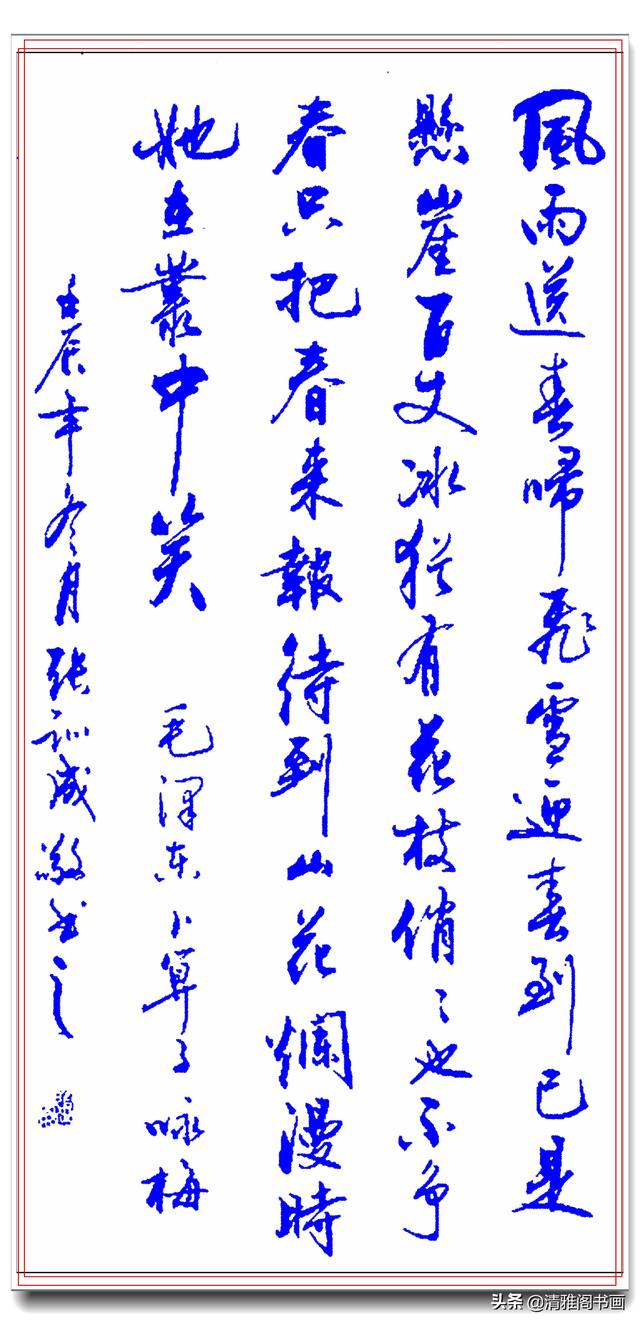 風雨送春歸飛雪迎春到已是
懸崖百丈冰猶有花枝俏々也不争
春只把春来報待到山花爛漫時
她在叢中笑 毛澤东卜算子咏梅
壬辰年冬月张训成敬书之
头条 @清雅阁书画